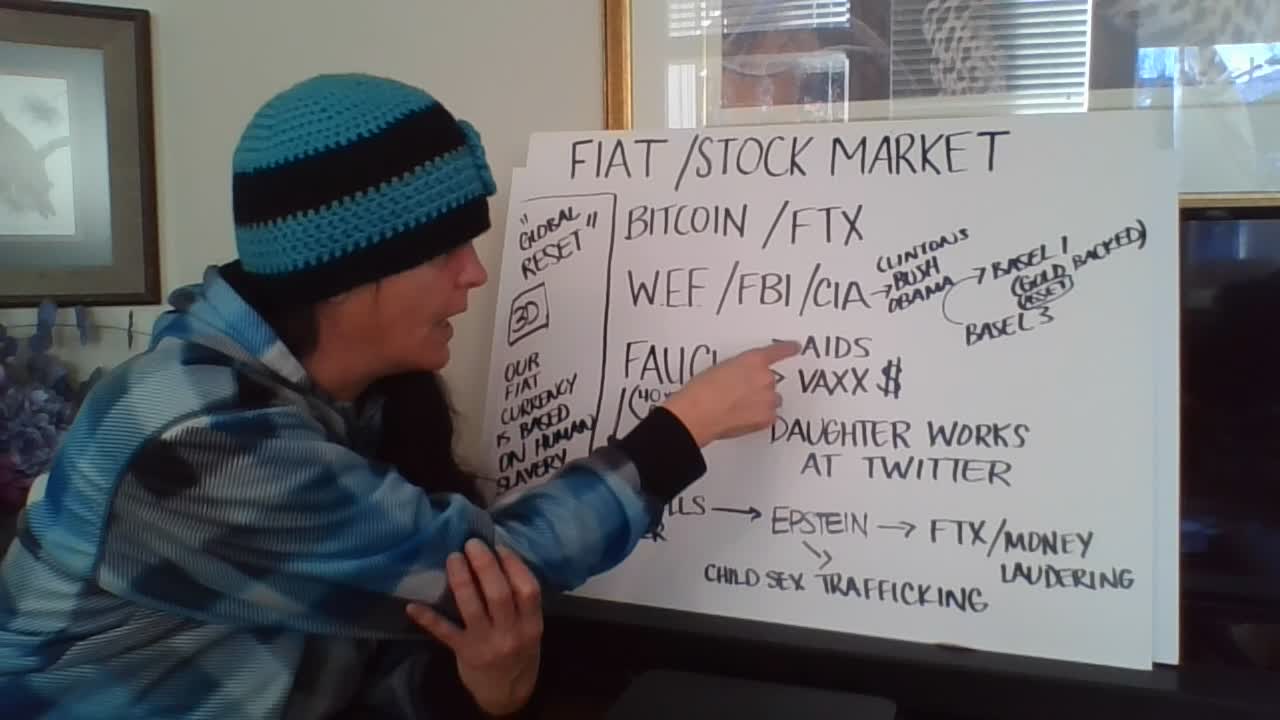 FIAT / STOCK MARKET
"GLOBAL
RESET"
3D
OUR
FIAT
CURRENCY
IS BASED
ON HUMAN
SLAVERY
BITCOIN / FTX
W.E.F. / FBI / CIA →
CLINTONS
BUSH
OBAMA
→ BASEL 1
(GOLD BACKED)
(ASSET)
BASEL 3
FAUCI
(40
AIDS
VAXX $
DAUGHTER WORKS
AT TWITTER
LLS → EPSTEIN → FTX / MONEY
LAUDERING
ER
CHILD SEX TRAFFICKING